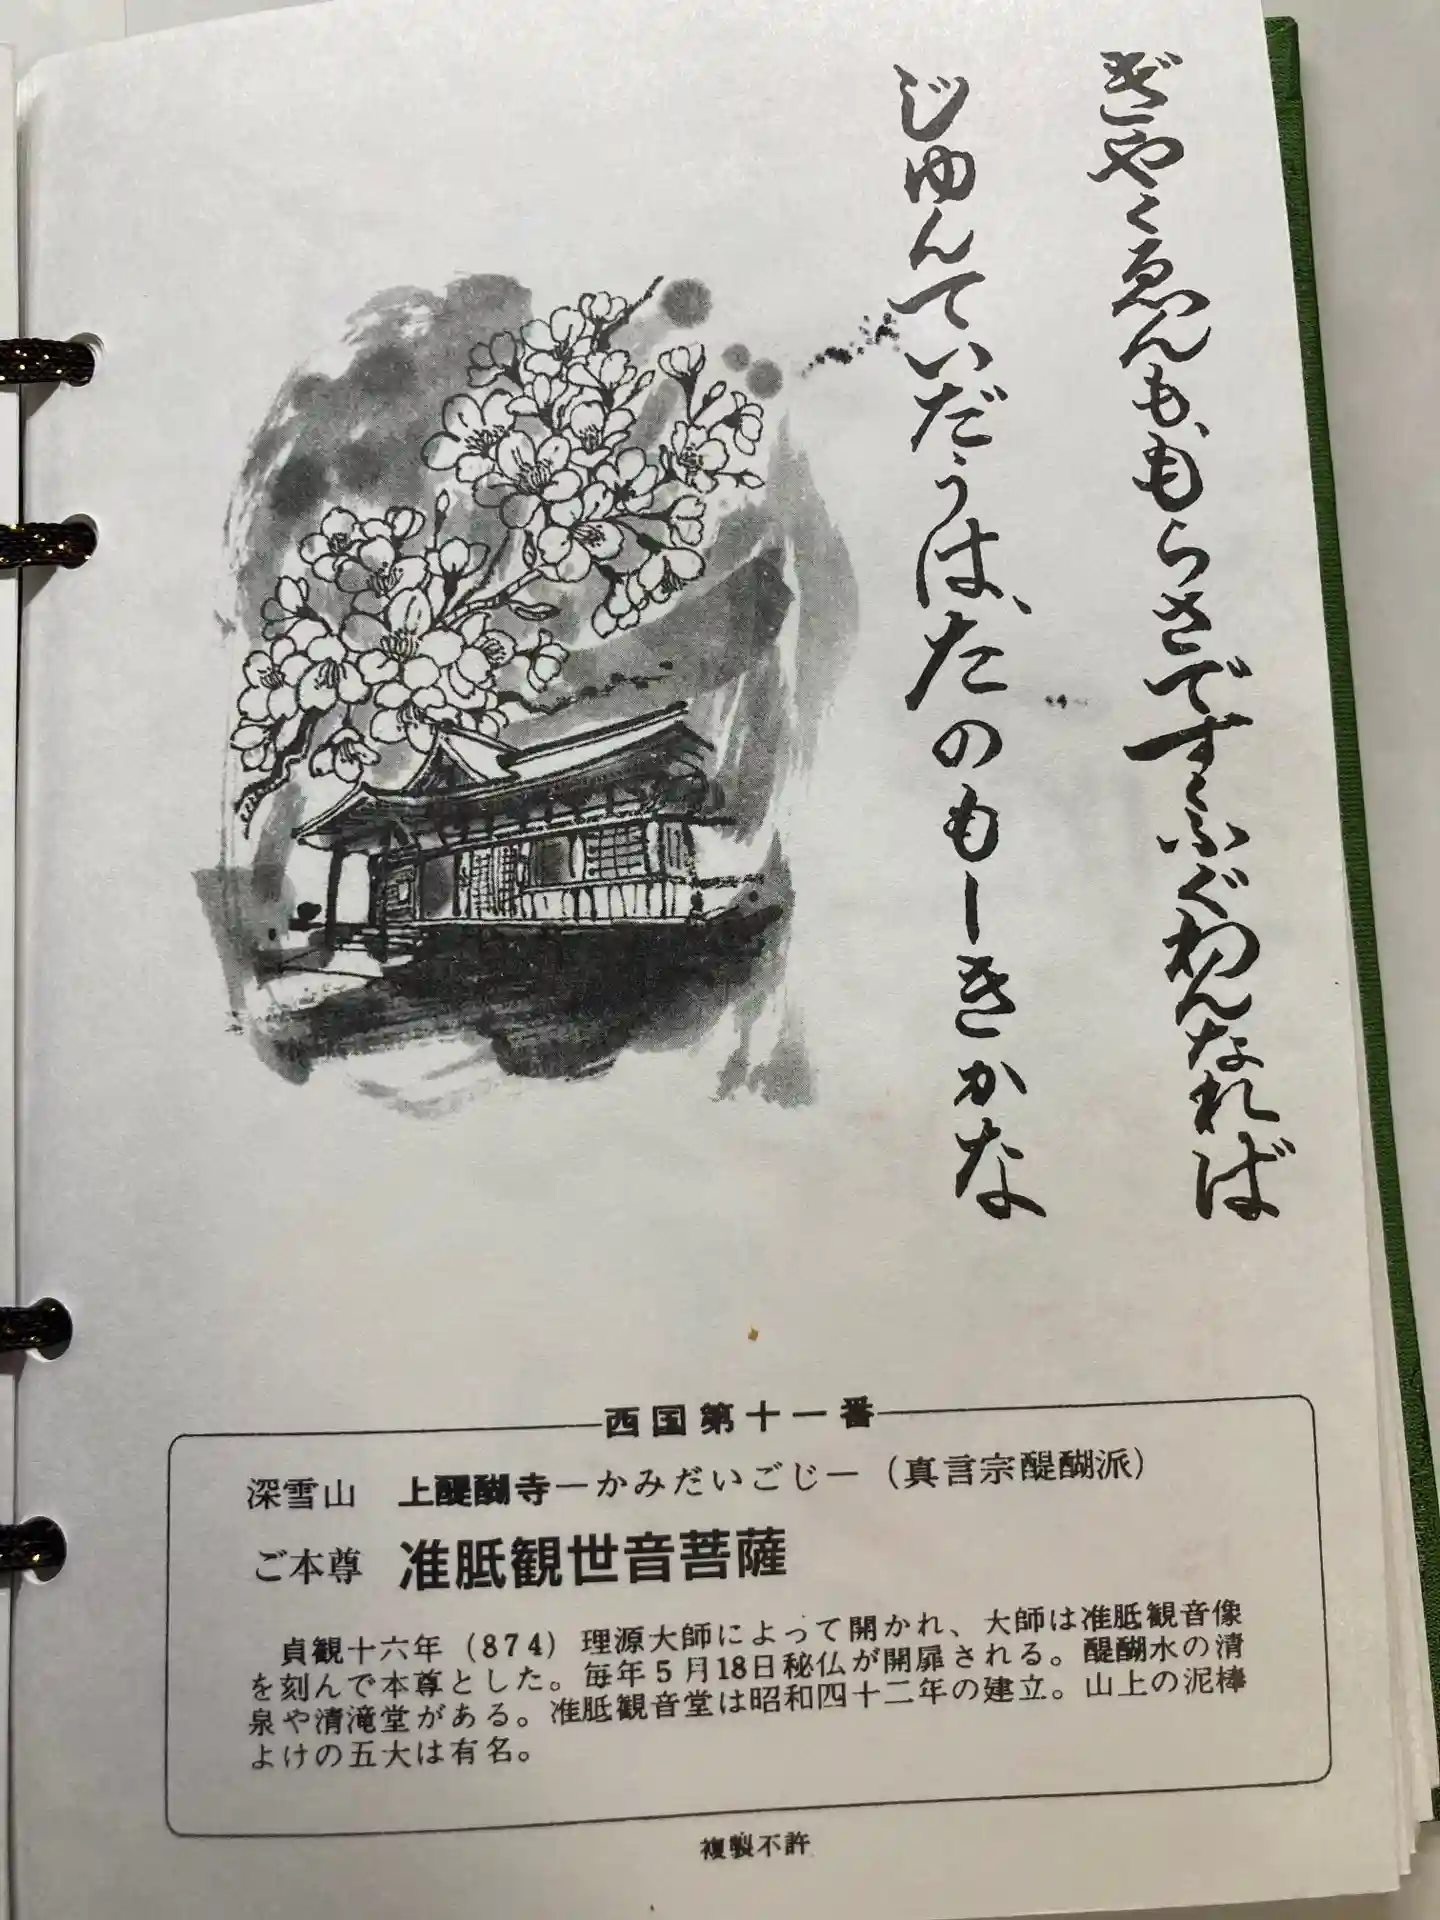 ぎやくゑんも、もらさですくふぐわんなれば
じゆんていだうは、たのもしきかな
西国第十一番
深雪山 上醍醐寺―かみだいごじ―（真言宗醍醐派）
ご本尊 准胝観世音菩薩
貞観十六年（874）理源大師によって開かれ、大師は准胝観音像
を刻んで本尊とした。毎年5月18日秘仏が開扉される。醍醐水の清
泉や清滝堂がある。准胝観音堂は昭和四十二年の建立。山上の泥棒
よけの五大は有名。
複製不許